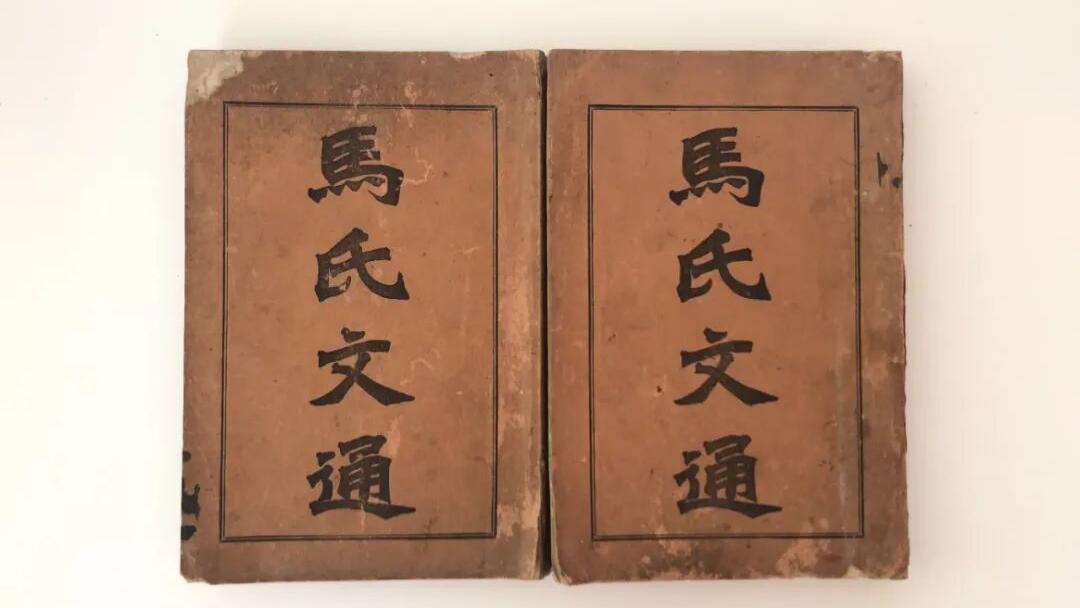 馬氏文通
馬氏文通